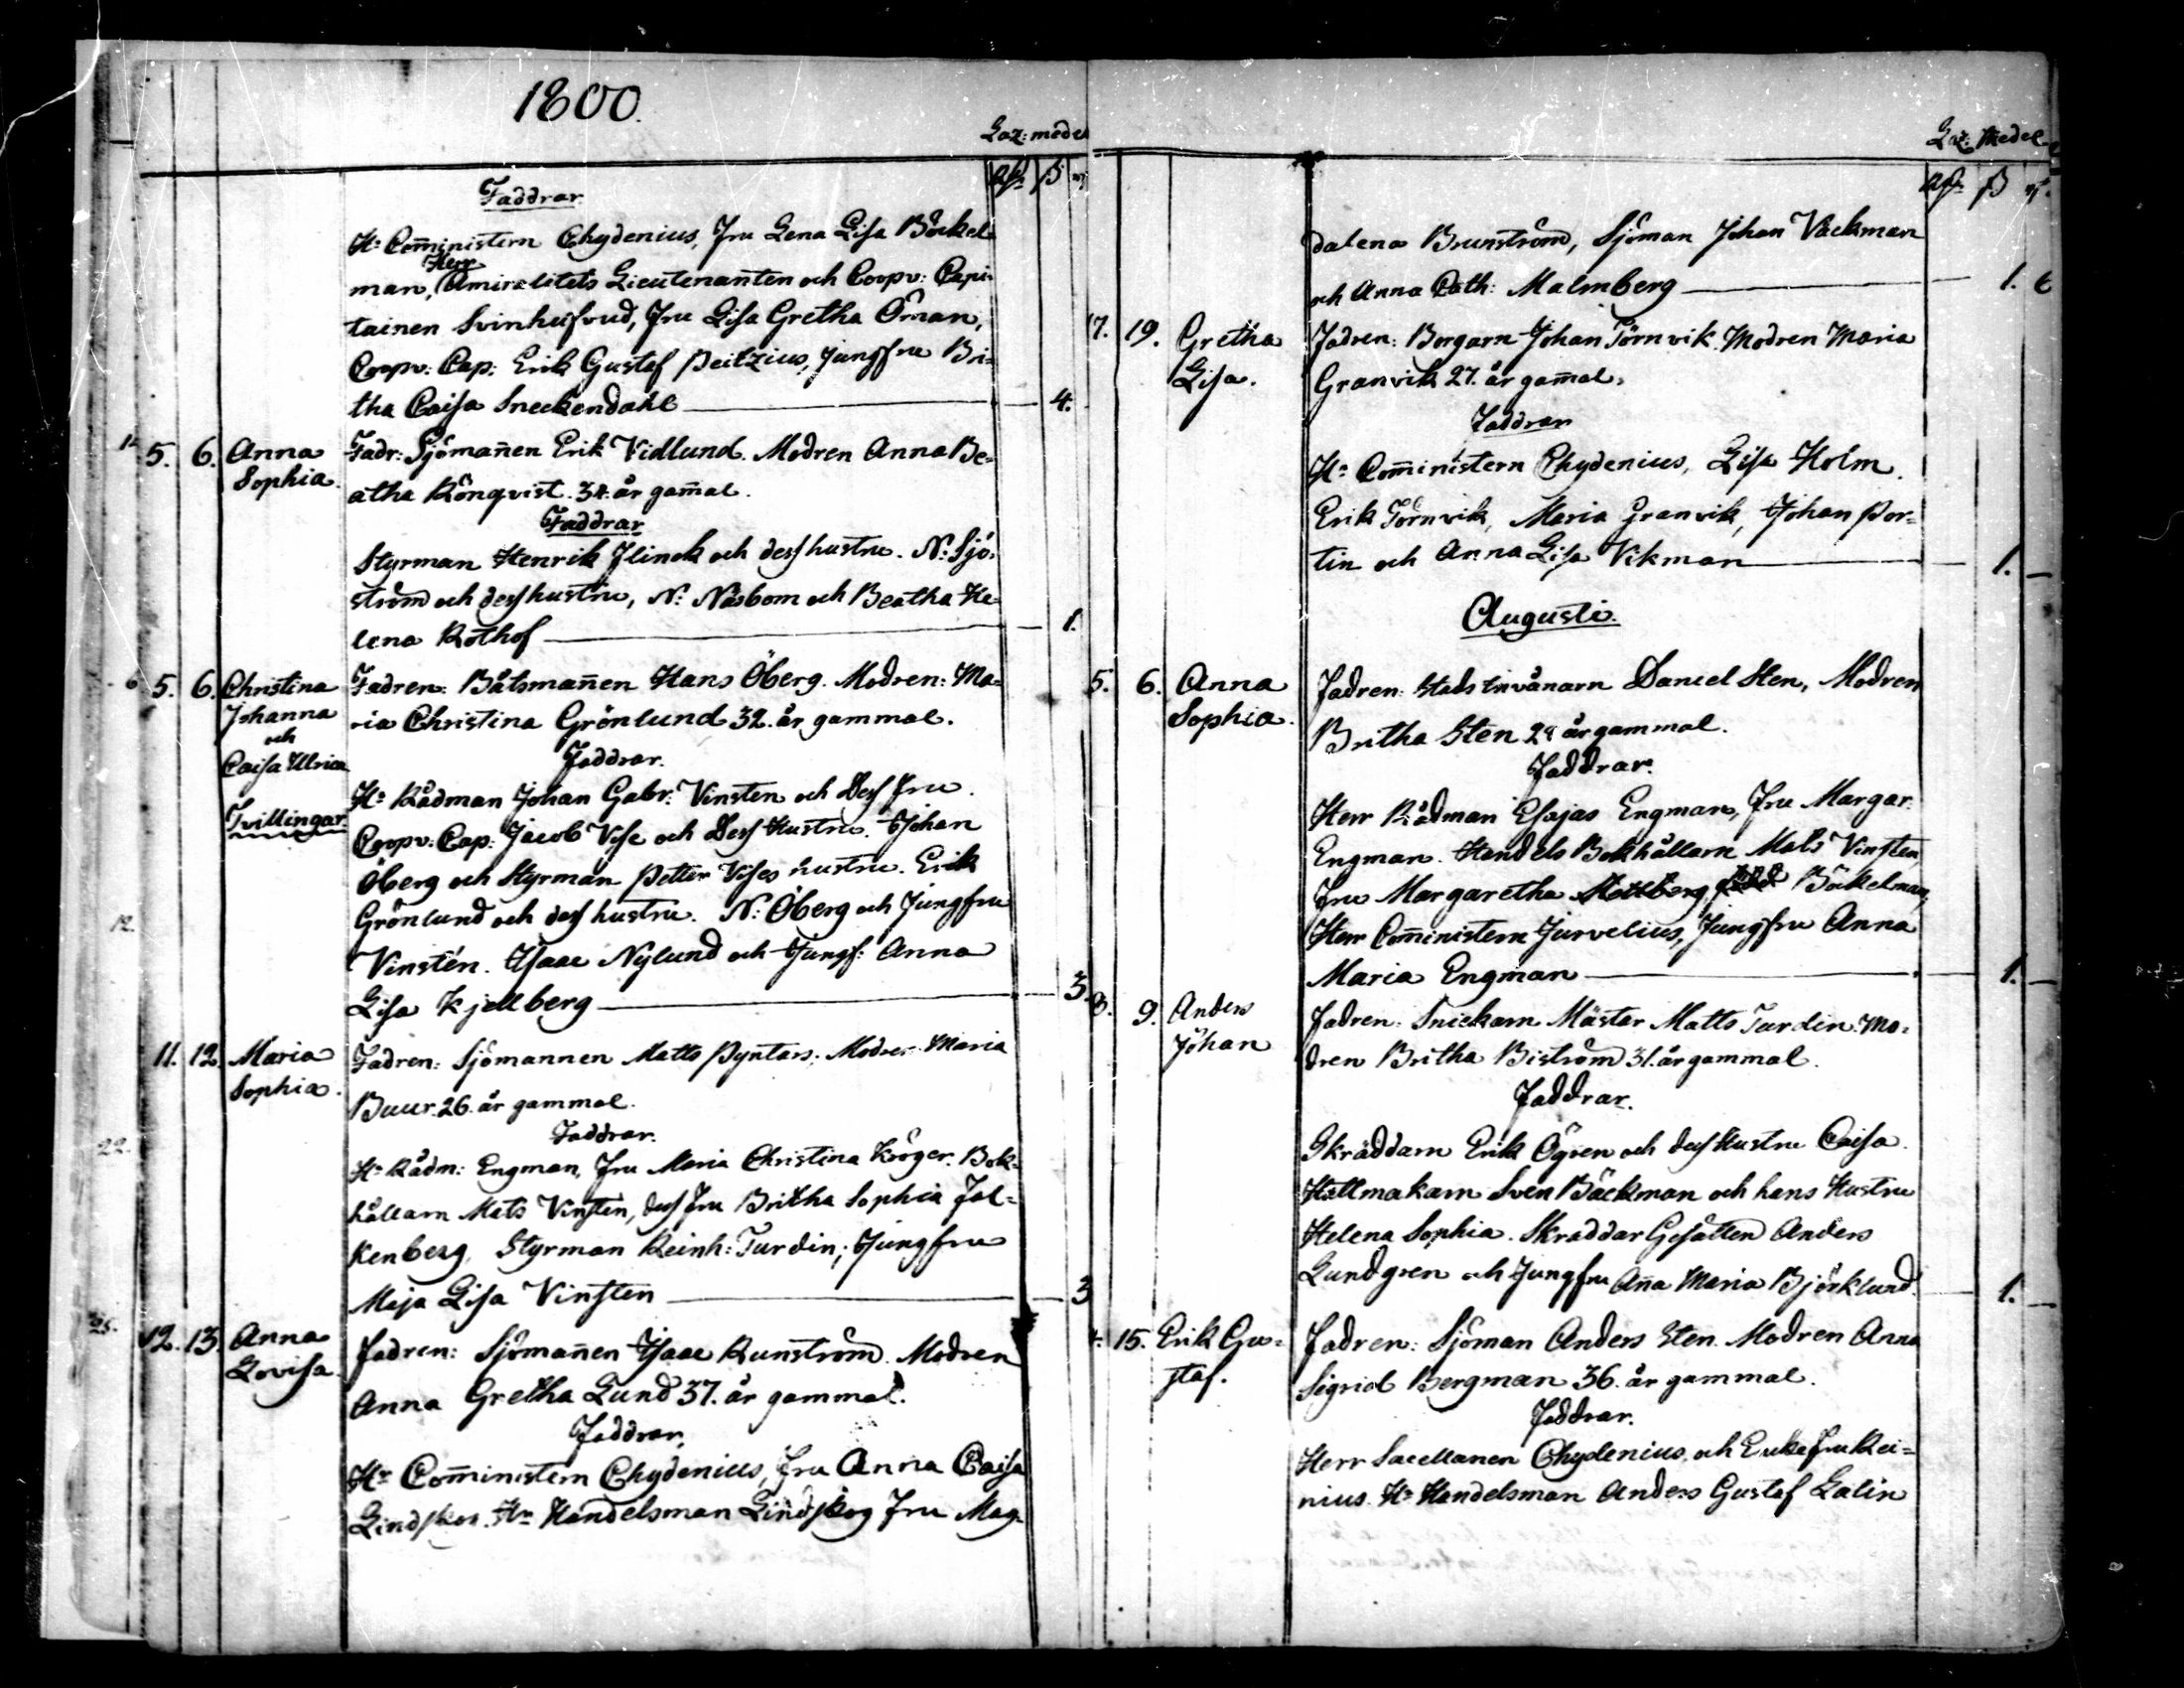 1800.
Laz: medel
Faddrar
Hr Com̄inistern Chydenius, Fru Lena Lisa Böckel-
Herr
man, Amiralitets Lieutenanten och Coopv: Capi-
tainen Svinhufvud, Fru Lisa Gretha Öman,
Coopv: Cap: Erik Gustaf Peitzius, Jungfru Bri-
tha Caisa Sneckendahl — 4.
5. 6. Anna Fadr: Sjöman̄en Erik Vidlund. Modren Anna Be-
Sophia. atha Rönqvist. 34. år gam̄al.
Faddrar
Styrman Henrik Flinck och dess hustru. N: Sjö-
ström och dess hustru, N: Näsbom och Beatha He-
lena Rothof — 1.
5. 6. Christina Fadren: Båtsman̄en Hans Öberg. Modren: Ma-
Johanna ria Christina Grönlund 32. år gammal.
och
Caisa Ulrica Faddrar.
Tvillingar. Hr Rådman Johan Gabr: Vinsten och Dess Fru.
Coopv: Cap: Jacob Vise och Dess Hustru. Johan
Öberg och Styrman Petter Vises hustru. Erik
Grönlund och dess hustru. N: Öberg och Jungfru
Vinstén. Isaac Nylund och Jungf: Anna
Lisa Kjellberg — 3.
11. 12. Maria Fadren: Sjömannen Matts Pyntars. Modren Maria
Sophia. Buur. 26. år gammal.
Faddrar.
Hr Rådm: Engman, Fru Maria Christina Kröger. Bok-
hållarn Mats Vinsten, dess Fru Britha Sophia Fal-
kenberg. Styrman Reinh: Turdin; Jungfru
Maja Lisa Vinsten — 3
12. 13. Anna Fadren: Sjöman̄en Isaac Runström. Modren
Lovisa. Anna Gretha Lund 37. år gammal.
Faddrar.
Hr Com̄inistern Chydenius, Fru Anna Caisa
Lindskog. Hr Handelsman Lindskog Fru Mag-
Laz: Medel
dalena Brunström, Sjöman Johan Vackman
och Anna Cath: Malmberg — 1. 6
17. 19. Gretha Fadren: Borgarn Johan Törnvik. Modren Maria
Lisa. Granvik 27. år gam̄al.
Faddrar
Hr Com̄inistern Chydenius, Lisa Holm.
Erik Törnvik, Maria Granvik, Johan Por-
tin och Anna Lisa Vikman — 1. —
Augusti.
5. 6. Anna Fadren: Stads Invånarn Daniel Sten, Modren
Sophia. Britha Sten 28 år gammal.
Faddrar.
Herr Rådman Esajas Engman, Fru Margar.
Engman. Handels Bokhållarn Mats Vinsten
Fru Margaretha Böckelman,
Herr Com̄inistern Jurvelius, Jungfru Anna
Maria Engman — 1. —
8. 9. Anders Fadren: Snickarn Mästar Matts Turdin. Mo-
Johan dren Britha Biström 31. år gammal.
Faddrar.
Skräddarn Erik Ögren och dess Hustru Caisa.
Hattmakarn Sven Bäckman och hans Hustru
Helena Sophia. Skräddar Gesällen Anders
Lundgren och Jungfru An̄a Maria Björklund. 1. —
15. Erik Gu- Fadren: Sjöman Anders Sten. Modren Anna
staf. Sigrid Bergman 36. år gammal.
Faddrar.
Herr Sacellanen Chydenius, och Enkefru Rei-
nius. Hr Handelsman Anders Gustaf Galin